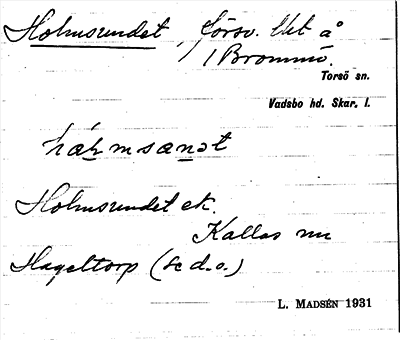 Holmsundet, försv. lht å
Brommö.
Torsö sn.
Vadsbo hd. Skar. l.
Holmsundet ek.
Kallas nu
Hageltorp (se d.o.)
L. MADSÉN 1931